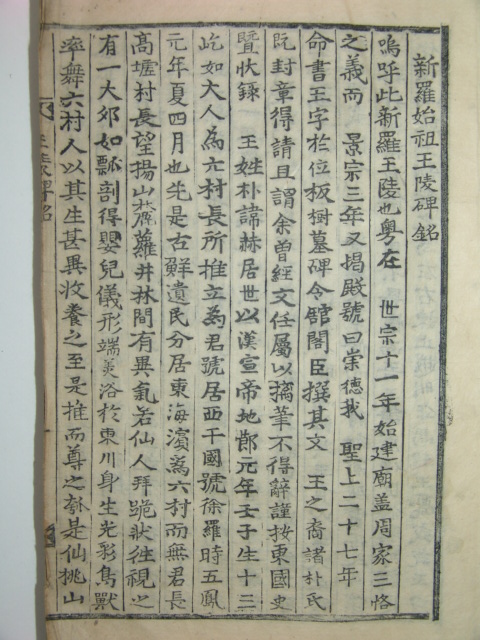 新羅始祖王陵碑銘
嗚呼此新羅王陵也粤在 世宗十一年始建廟盖周家三恪
之義而 景宗三年又揭殿號曰崇德我 聖上二十七年
命書王字於位板樹墓碑令舘閣臣撰其文 王之裔諸朴氏
旣封章得請且謂余曾經文任屬以摛筆不得辭謹按東國史
暨狀錄 王姓朴諱赫居世以漢宣帝地節元年壬子生十三
屹如大人為六村長所推立為君號居西干國號徐羅時五鳳
元年夏四月也先是古鮮遺民分居東海濱為六村而無君長
高墟村長望揚山麓蘿井林間有異氣若仙人拜跪狀往視之
有一大卵如瓢剖得嬰兒儀形端美浴於東川身生光彩鳥獸
率舞六村人以其生甚異收養之至是推而尊之盖是仙桃山
王陵碑銘